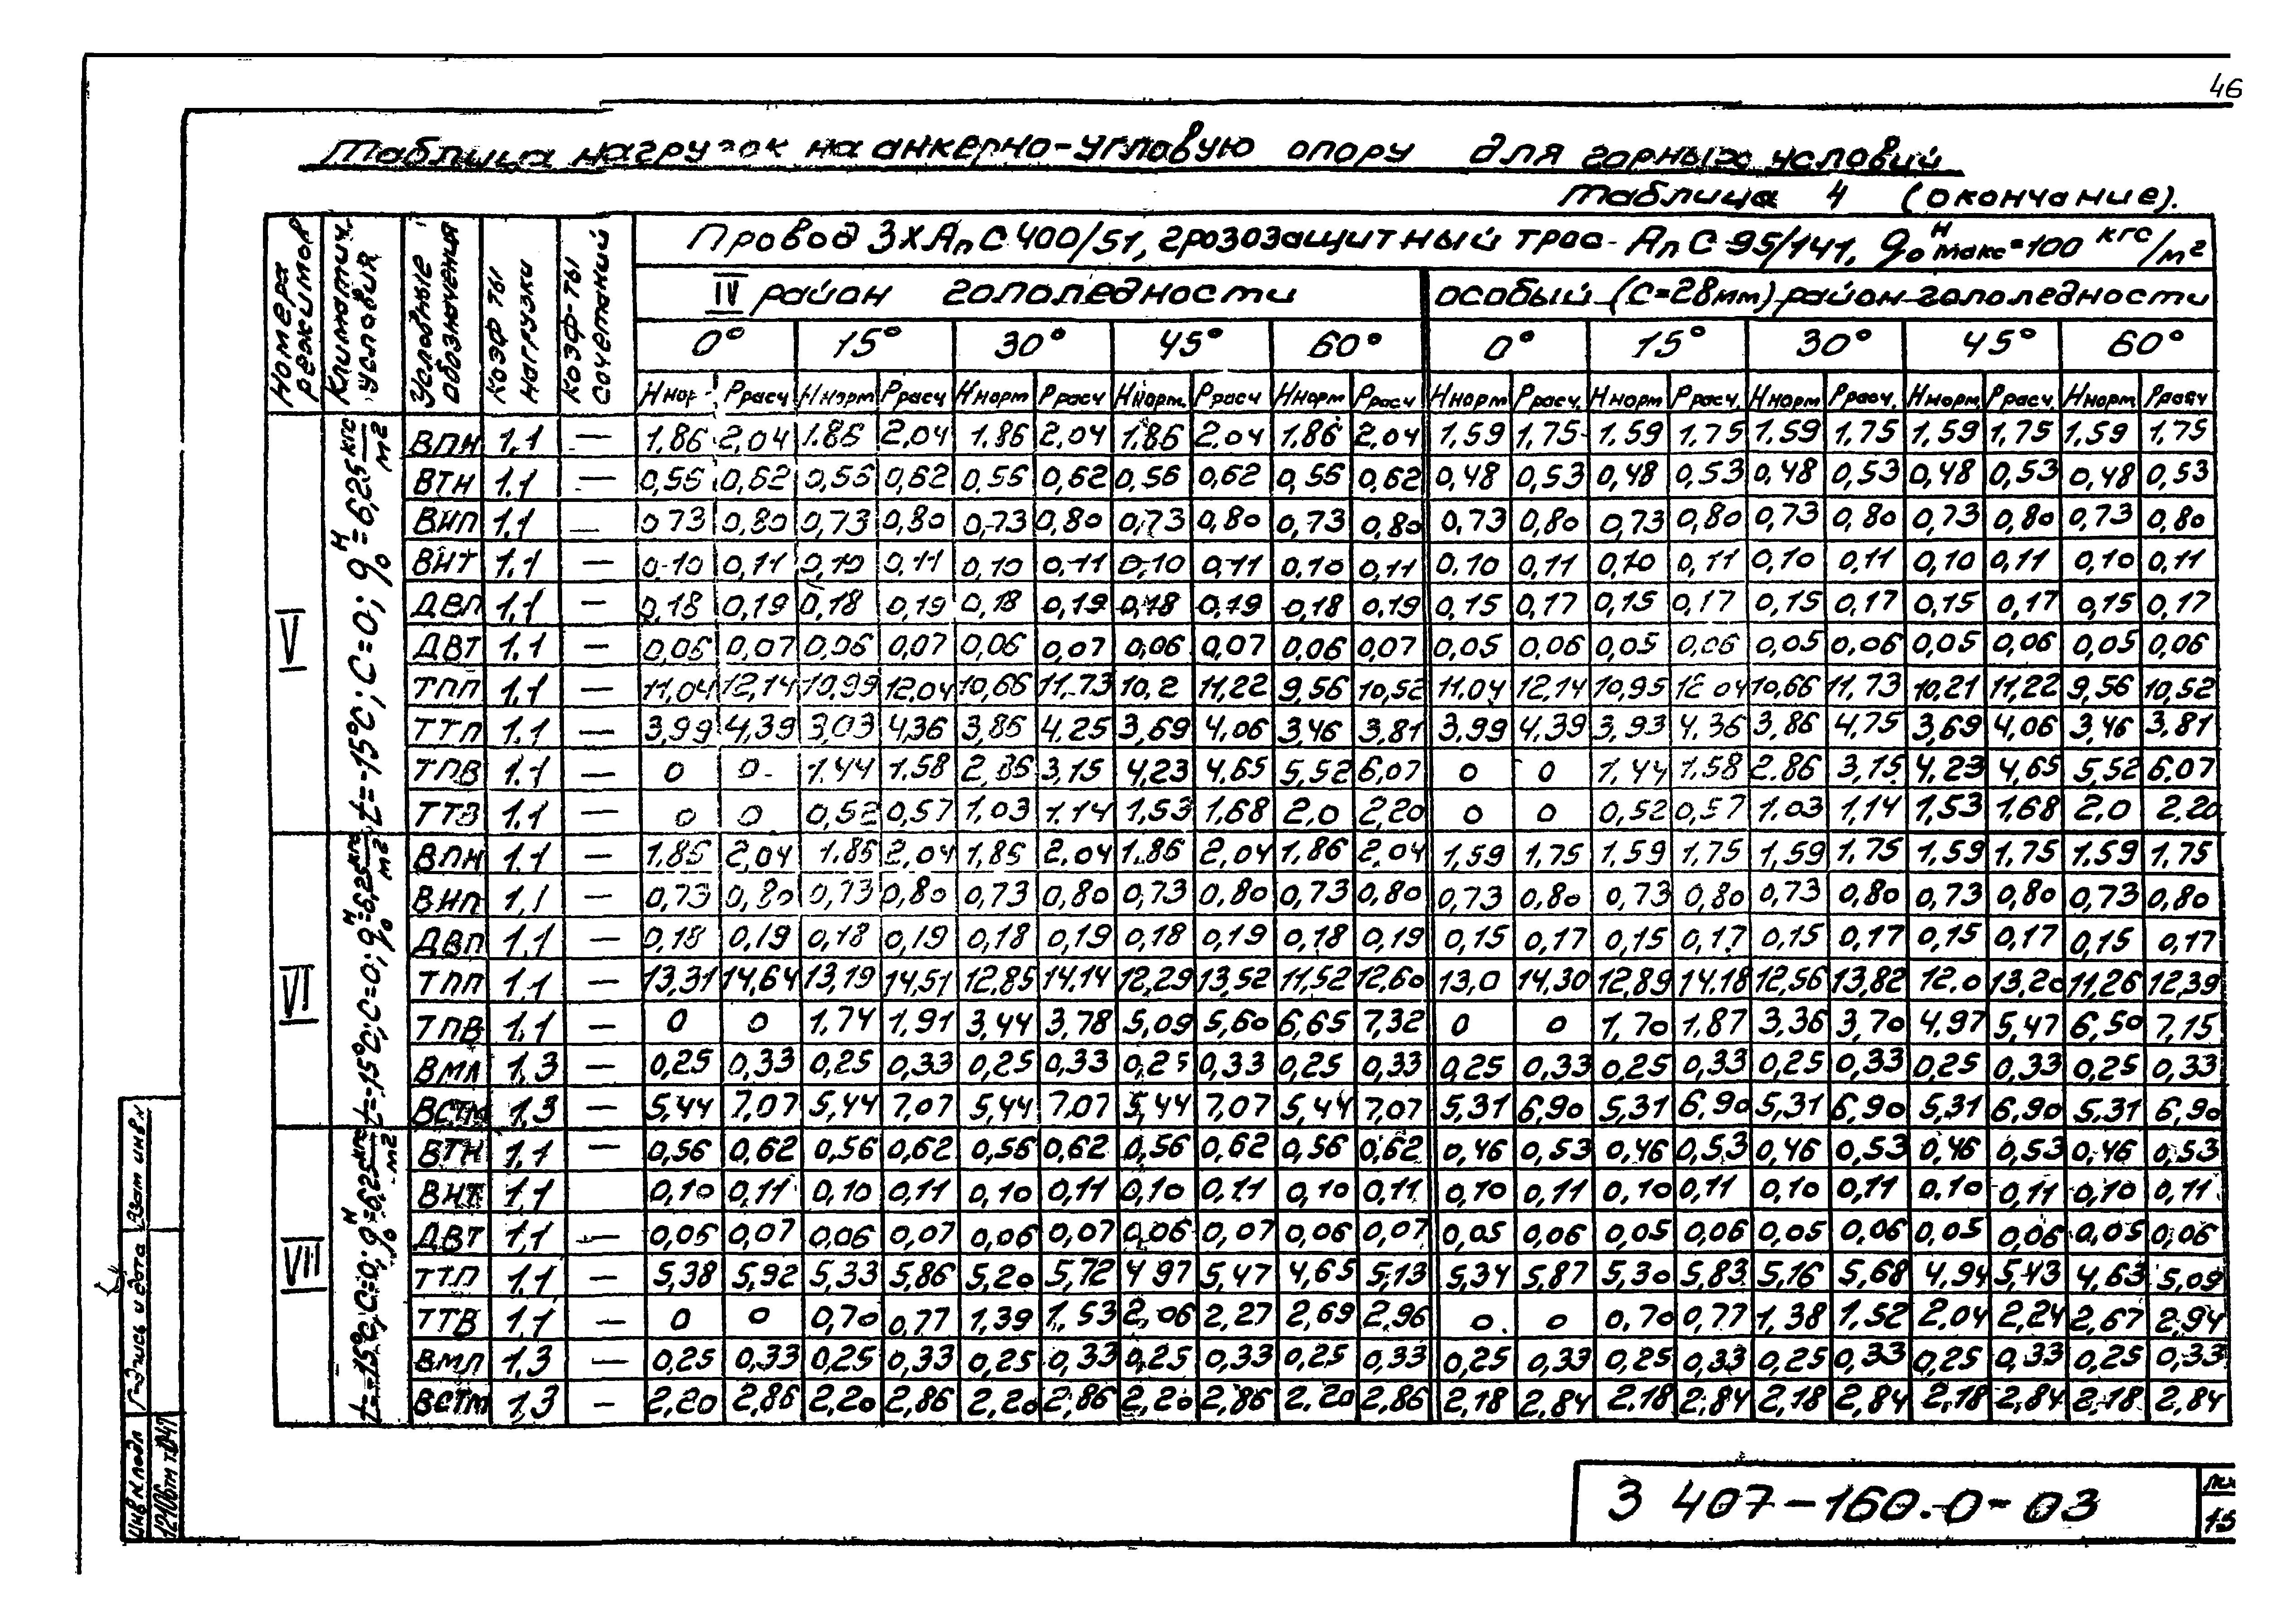 46
Таблица нагрузок на анкерно-угловую опору для горных условий
Таблица 4 (окончание).
Номера режимов | Климатич. условия | Условные обозначения | Коэф-ты нагрузки | Коэф-ты сочетаний | Провод 3хАпС400/51, грозозащитный трос АпС 95/141, q₀ᴴ макс=100 кгс/м²
IV район гололедности | особый (С=28мм) район гололедности
0° 15° 30° 45° 60° 0° 15° 30° 45° 60°
Ннор Ррасч Ннорм Ррасч Ннорм Ррасч Ннорм. Ррасч Ннорм Ррасч Ннорм Ррасч. Ннорм Ррасч. Ннорм Ррасч. Ннорм Ррасч. Ннорм Ррасч
V
t=-15°С; С=0; q₀ᴴ=6,25 кгс/м²
ВПН 1.1 — 1,86 2,04 1.86 2,04 1.86 2,04 1.86 2,04 1,86 2,04 1,59 1,75 1.59 1.75 1.59 1,75 1,59 1,75 1,59 1,75
ВТН 1.1 — 0,56 0,62 0,56 0,62 0,56 0,62 0,56 0,62 0,56 0,62 0,48 0,53 0,48 0,53 0,48 0,53 0,48 0,53 0,48 0,53
ВНП 1.1 — 0 73 0,80 0,73 0,80 0,73 0,80 0,73 0,80 0,73 0,80 0,73 0,80 0,73 0,80 0,73 0,80 0,73 0,80 0,73 0,80
ВНТ 1.1 — 0.10 0,11 0,10 0,11 0,10 0,11 0,10 0,11 0,10 0,11 0,10 0,11 0,10 0,11 0,10 0,11 0,10 0,11 0,10 0,11
ДВП 1.1 — 0,18 0,19 0,18 0,19 0,18 0,19 0,18 0,19 0,18 0,19 0,15 0,17 0,15 0,17 0,15 0,17 0,15 0,17 0,15 0,17
ДВТ 1.1 — 0,06 0,07 0,06 0,07 0,06 0,07 0,06 0,07 0,06 0,07 0,05 0,06 0,05 0,06 0,05 0,06 0,05 0,06 0,05 0,06
ТПП 1.1 — 11,04 12,14 10,99 12,04 10,66 11,73 10,2 11,22 9,56 10,52 11,04 12,14 10,95 12 04 10,66 11,73 10,21 11,22 9,56 10,52
ТТП 1.1 — 3,99 4,39 3,03 4,36 3,86 4.25 3,69 4,06 3,46 3,81 3,99 4.39 3,93 4.36 3,86 4,75 3,69 4,06 3,46 3,81
ТПВ 1.1 — 0 0 1.44 1.58 2,86 3,15 4,23 4,65 5,52 6,07 0 0 1,44 1.58 2.86 3,15 4,23 4,65 5,52 6,07
ТТВ 1.1 — 0 0 0,52 0,57 1,03 1.14 1,53 1,68 2,0 2,20 0 0 0,52 0,57 1.03 1,14 1,53 1,68 2,0 2,20
VI
t=-15°С; С=0; q₀ᴴ=6,25 кгс/м²
ВПН 1.1 — 1.86 2,04 1.86 2,04 1,86 2,04 1,86 2,04 1,86 2,04 1,59 1,75 1,59 1,75 1,59 1,75 1,59 1,75 1.59 1,75
ВНП 1,1 — 0,73 0,80 0,73 0,80 0,73 0,80 0,73 0,80 0,73 0,80 0,73 0,80 0,73 0,80 0,73 0,80 0,73 0,80 0,73 0,80
ДВП 1.1 — 0,18 0,19 0,18 0,19 0,18 0,19 0,18 0,19 0,18 0,19 0,15 0,17 0,15 0,17 0,15 0,17 0,15 0,17 0,15 0,17
ТПП 1.1 — 13,31 14,64 13,19 14,51 12,85 14,14 12,29 13,52 11,52 12,60 13,0 14,30 12,89 14,18 12,56 13,82 12,0 13,20 11,26 12,39
ТПВ 1.1 — 0 0 1,74 1,91 3,44 3,78 5,09 5,60 6,65 7,32 0 0 1,70 1,87 3,36 3,70 4,97 5,47 6,50 7,15
ВМЛ 1,3 — 0,25 0,33 0,25 0,33 0,25 0,33 0,25 0,33 0,25 0,33 0,25 0,33 0,25 0,33 0,25 0,33 0,25 0,33 0,25 0,33
ВСТМ 1,3 — 5,44 7,07 5,44 7,07 5,44 7,07 5,44 7,07 5,44 7,07 5,31 6,90 5,31 6,90 5,31 6,90 5,31 6,90 5,31 6,90
VII
t=-15°С, С=0; q₀ᴴ=6,25 кгс/м²
ВТН 1.1 — 0,56 0,62 0,56 0,62 0,56 0,62 0,56 0,62 0,56 0,62 0,46 0,53 0,46 0,53 0,46 0,53 0,46 0,53 0,46 0,53
ВНТ 1.1 0,10 0,11 0,10 0,11 0,10 0,11 0,10 0,11 0,10 0,11 0,10 0,11 0,10 0,11 0,10 0,11 0.10 0,11 0,10 0,11
ДВТ 1.1 — 0,06 0,07 0,06 0,07 0,06 0,07 0,06 0,07 0,06 0,07 0,05 0,06 0,05 0,06 0,05 0,06 0,05 0,06 0,05 0,06
ТТП 1.1 — 5,38 5,92 5,33 5,86 5,20 5,72 4 97 5,47 4,65 5,13 5,34 5,87 5,30 5,83 5,16 5,68 4,94 5,43 4,63 5,09
ТТВ 1.1 — 0 0 0,70 0,77 1,39 1,53 2,06 2,27 2,69 2,96 0 0 0,70 0,77 1,38 1,52 2,04 2,24 2,67 2,94
ВМЛ 1,3 — 0,25 0,33 0,25 0,33 0,25 0,33 0,25 0,33 0,25 0,33 0,25 0,33 0,25 0,33 0,25 0,33 0,25 0,33 0,25 0,33
ВСТМ 1,3 — 2,20 2,86 2,20 2,86 2,20 2,86 2,20 2,86 2,20 2,86 2,18 2,84 2,18 2,84 2,18 2,84 2,18 2,84 2,18 2,84
Взам инв.н
Подпись и дата
Инв N подл
12406тм т.047
3 407-160.0-03
15